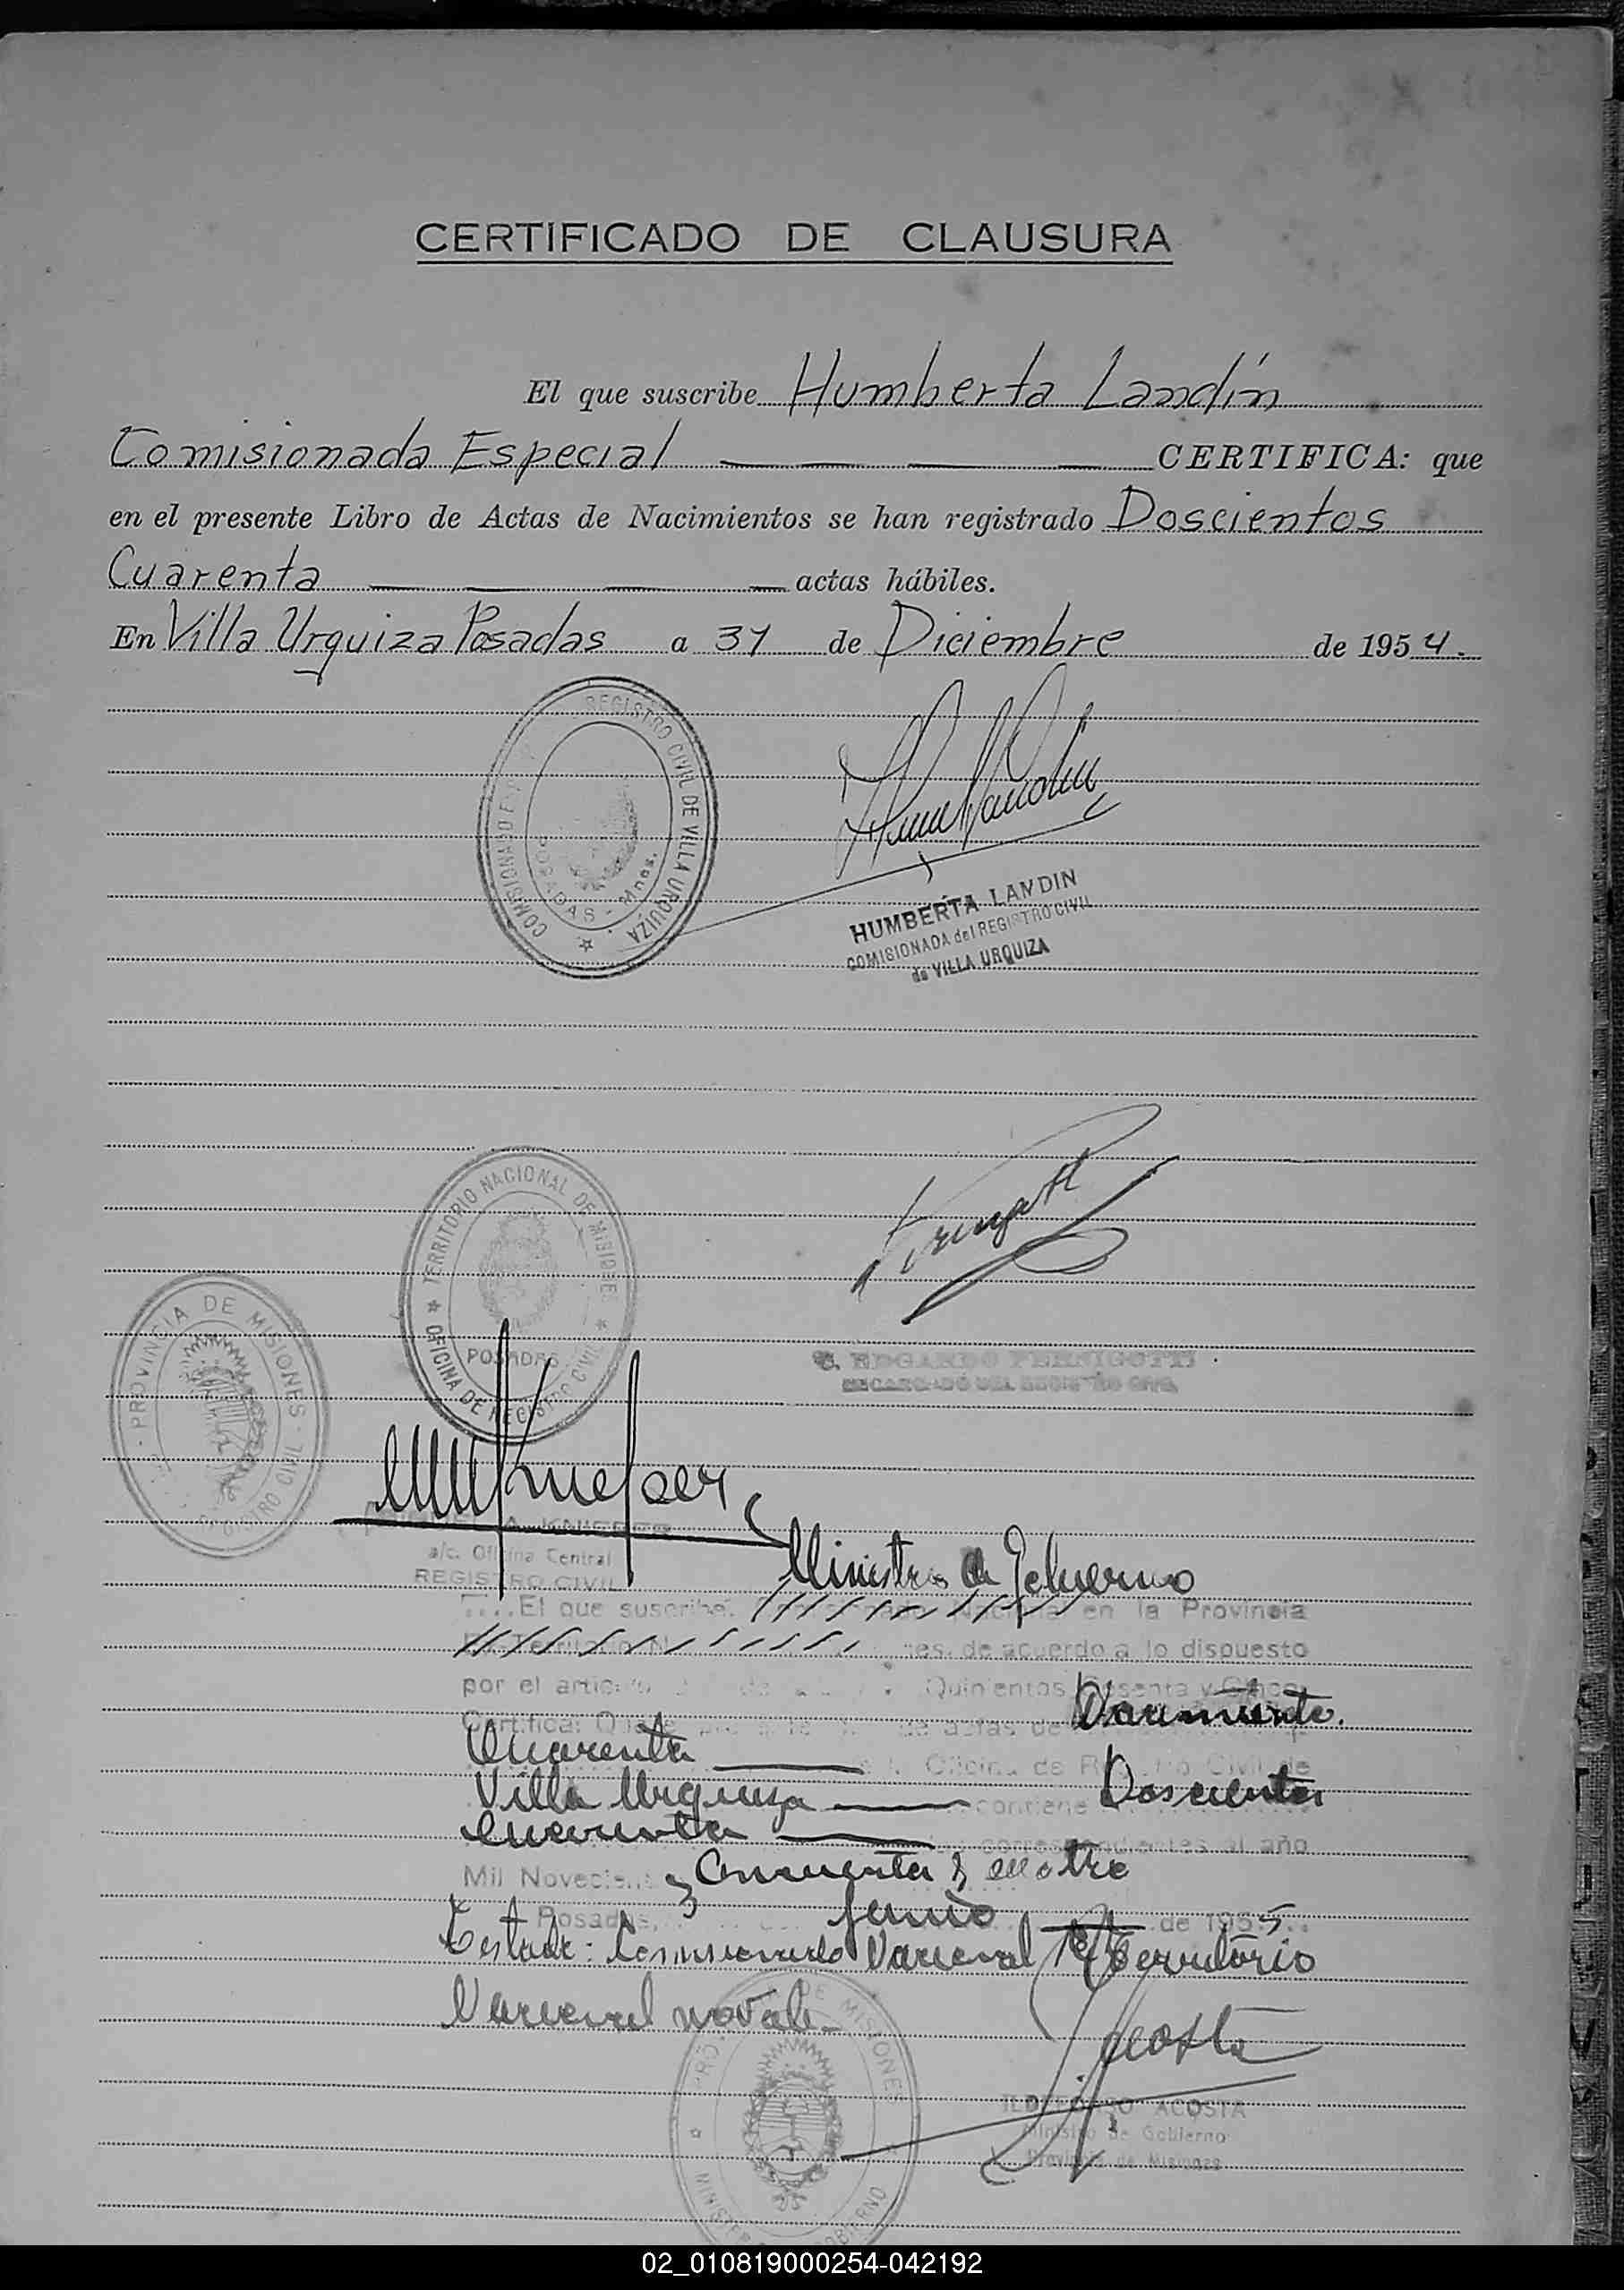 CERTIFICADO DE CLAUSURA
El que suscribe Humberta Landín
Comisionada Especial CERTIFICA: que
en el presente Libro de Actas de Nacimientos se han registrado Doscientos
Cuarenta actas hábiles.
En Villa Urquiza Posadas a 31 de Diciembre de 1954.
REGISTRO CIVIL DE VILLA URQUIZA
COMISIONADO
POSADAS - Mnes.
HUMBERTA LANDIN
COMISIONADA del REGISTRO CIVIL
de VILLA URQUIZA
TERRITORIO NACIONAL DE MISIONES
POSADAS
OFICINA DE REGISTRO CIVIL
EDGARDO PERNIGOTTI
ENCARGADO DEL REGISTRO CIVIL
PROVINCIA DE MISIONES
REGISTRO CIVIL
a/c. Oficina Central
REGISTRO CIVIL
Ministro de Gobierno
El que suscribe. en la Provincia
de acuerdo a lo dispuesto
por el artículo Quinientos Sesenta y Cinco
Certifica: Que de actas de Nacimiento.
Cuarenta Oficina de Registro Civil de
Villa Urquiza contiene Doscientos
cuarenta correspondientes al año
Mil Novecientos y Cincuenta y cuatro
Posadas, junio de 1955.
Testado: Comisionado Nacional Territorio
Nacional no vale
Acosta
ILDEFONSO ACOSTA
Ministro de Gobierno
Provincia de Misiones
DE MISIONES
02_010819000254-042192